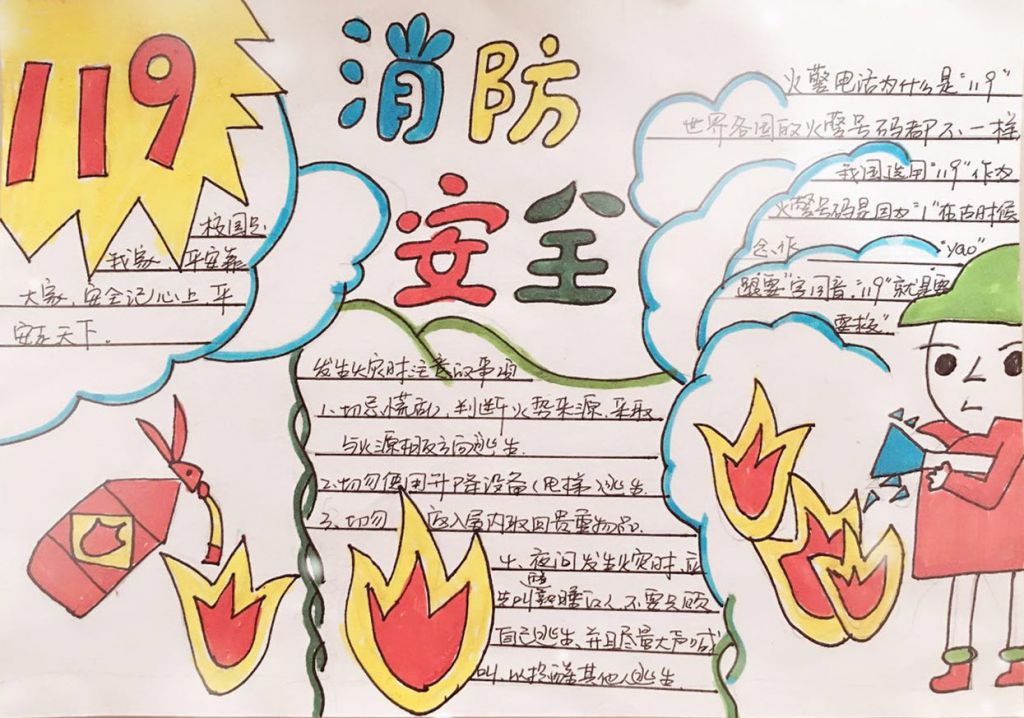 119
消防
安全
校园是
我家,平安靠
大家,安全记心上,平
安在天下。
火警电话为什么是"119"
世界各国的火警号码都不一样
我国选用"119"作为
火警号码是因为"1"在古时候
念作"yao"
跟要"字同音,"119"就是要
要救"
发生火灾时注意的事项
1.切忌慌乱,判断火势来源,采取
与火源相反方向逃生.
2.切勿使用升降设备(电梯)逃生.
3.切勿 返入屋内取回贵重物品.
4.夜间发生火灾时,应
先叫醒熟睡的人,不要只顾
自己逃生,并且尽量大声喊
叫,以提醒其他人逃生.